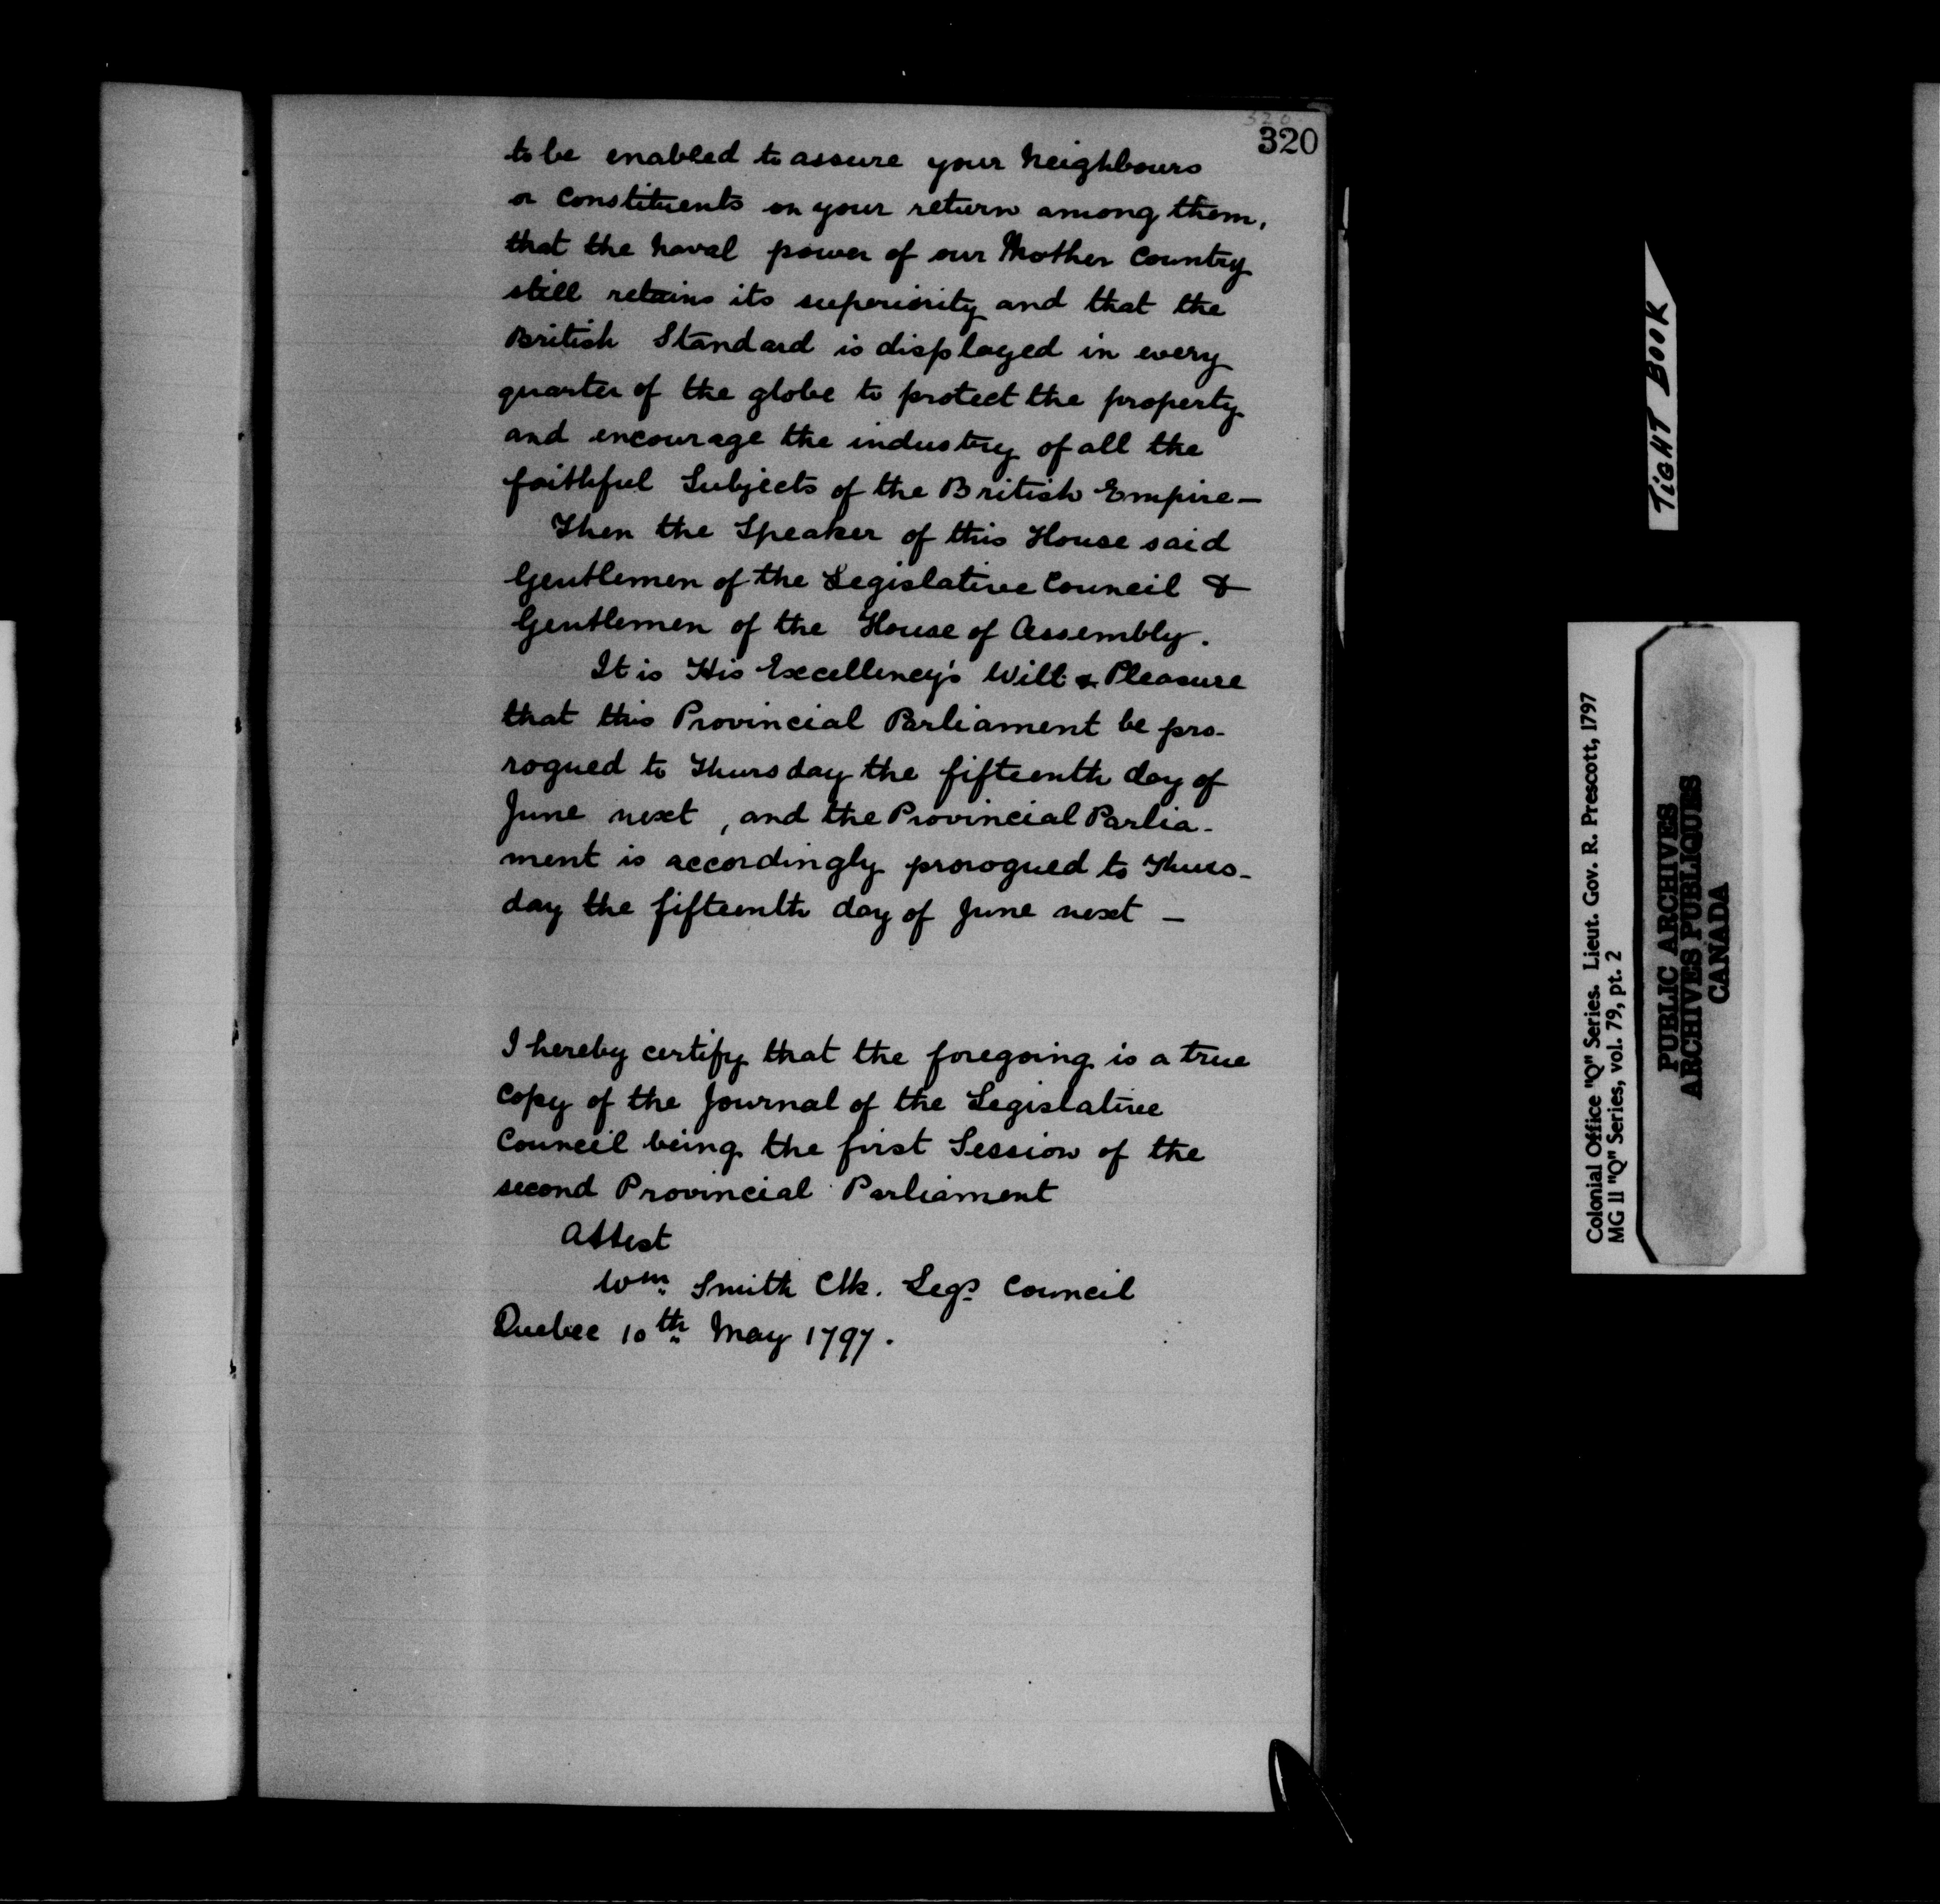 320
320
to be enabled to assure your Neighbours
or Constituents on your return among them,
that the Naval power of our Mother Country
still retains its superiority and that the
British Standard is displayed in every
quarter of the globe to protect the property
and encourage the industry of all the
faithful Subjects of the British Empire—
Then the Speaker of this House said
Gentlemen of the Legislative Council &
Gentlemen of the House of Assembly.
It is His Excellency's Will & Pleasure
that this Provincial Parliament be pro-
rogued to Thursday the fifteenth day of
June next, and the Provincial Parlia-
ment is accordingly prorogued to Thurs-
day the fifteenth day of June next —
I hereby certify that the foregoing is a true
Copy of the Journal of the Legislative
Council being the first Session of the
second Provincial Parliament
Attest
Wm. Smith Clk. Legs. Council
Quebec 10th May 1797.
TIGHT BOOK
Colonial Office "Q" Series. Lieut. Gov. R. Prescott, 1797
MG 11 "Q" Series, vol. 79, pt. 2
PUBLIC ARCHIVES
ARCHIVES PUBLIQUES
CANADA